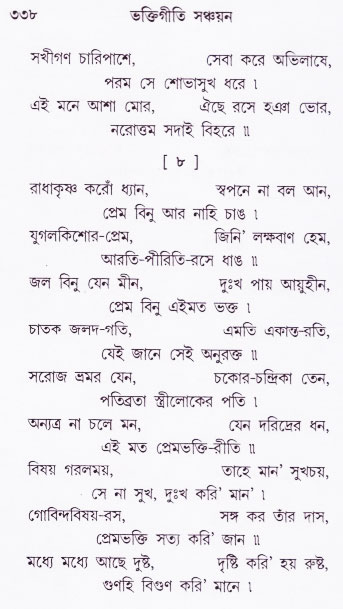 ৩৩৮ ভক্তিগীতি সঞ্চয়ন
সখীগণ চারিপাশে, সেবা করে অভিলাষে,
পরম সে শোভাসুখ ধরে ।
এই মনে আশা মোর, ঐছে রসে হঞা ভোর,
নরোত্তম সদাই বিহরে ॥
[ ৮ ]
রাধাকৃষ্ণ করোঁ ধ্যান, স্বপনে না বল আন,
প্রেম বিনু আর নাহি চাঙ ।
যুগলকিশোর-প্রেম, জিনি’ লক্ষবাণ হেম,
আরতি-পীরিতি-রসে ধাঙ ॥
জল বিনু যেন মীন, দুঃখ পায় আয়ুহীন,
প্রেম বিনু এইমত ভক্ত ।
চাতক জলদ-গতি, এমতি একান্ত-রতি,
যেই জানে সেই অনুরক্ত ॥
সরোজ ভ্রমর যেন, চকোর-চন্দ্রিকা তেন,
পতিব্রতা স্ত্রীলোকের পতি ।
অন্যত্র না চলে মন, যেন দরিদ্রের ধন,
এই মত প্রেমভক্তি-রীতি ॥
বিষয় গরলময়, তাহে মান’ সুখচয়,
সে না সুখ, দুঃখ করি’ মান’ ।
গোবিন্দবিষয়-রস, সঙ্গ কর তাঁর দাস,
প্রেমভক্তি সত্য করি’ জান ॥
মধ্যে মধ্যে আছে দুষ্ট, দৃষ্টি করি’ হয় রুষ্ট,
গুণহি বিগুণ করি’ মানে ।